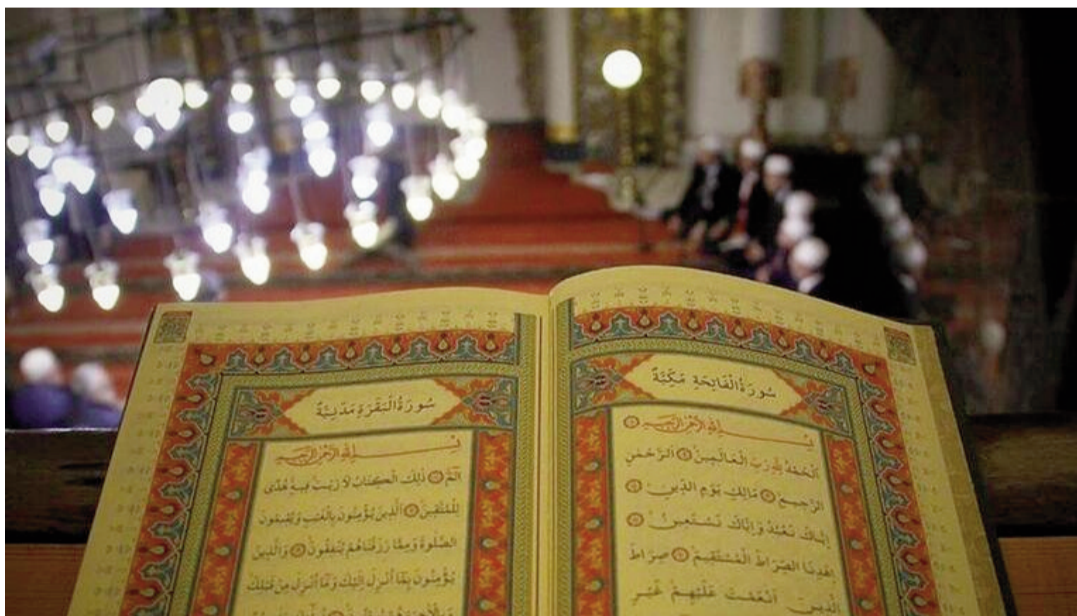 سُورَةُ الْفَاتِحَةِ مَكِّيَّةٌ
بِسْمِ اللّٰهِ الرَّحْمٰنِ الرَّحِيمِ
اَلْحَمْدُ لِلّٰهِ رَبِّ الْعَالَمِينَۙ الرَّحْمٰنِ
الرَّحِيمِۙ مَالِكِ يَوْمِ الدِّينِۜ
اِيَّاكَ نَعْبُدُ وَاِيَّاكَ نَسْتَعِينُۜ
اِهْدِنَا الصِّرَاطَ الْمُسْتَقِيمَۙ صِرَاطَ
الَّذِينَ اَنْعَمْتَ عَلَيْهِمْۙ غَيْرِ
سُورَةُ الْبَقَرَةِ مَدَنِيَّةٌ
بِسْمِ اللّٰهِ الرَّحْمٰنِ الرَّحِيمِ
الٓمٓۜ ذٰلِكَ الْكِتَابُ لَا رَيْبَۚ فِيهِۚ هُدًى
لِلْمُتَّقِينَۙ اَلَّذِينَ يُؤْمِنُونَ بِالْغَيْبِ وَيُقِيمُونَ
الصَّلٰوةَ وَمِمَّا رَزَقْنَاهُمْ يُنْفِقُونَۙ وَالَّذِينَ
يُؤْمِنُونَ بِمَا اُنْزِلَ اِلَيْكَ وَمَا اُنْزِلَ مِنْ قَبْلِكَ